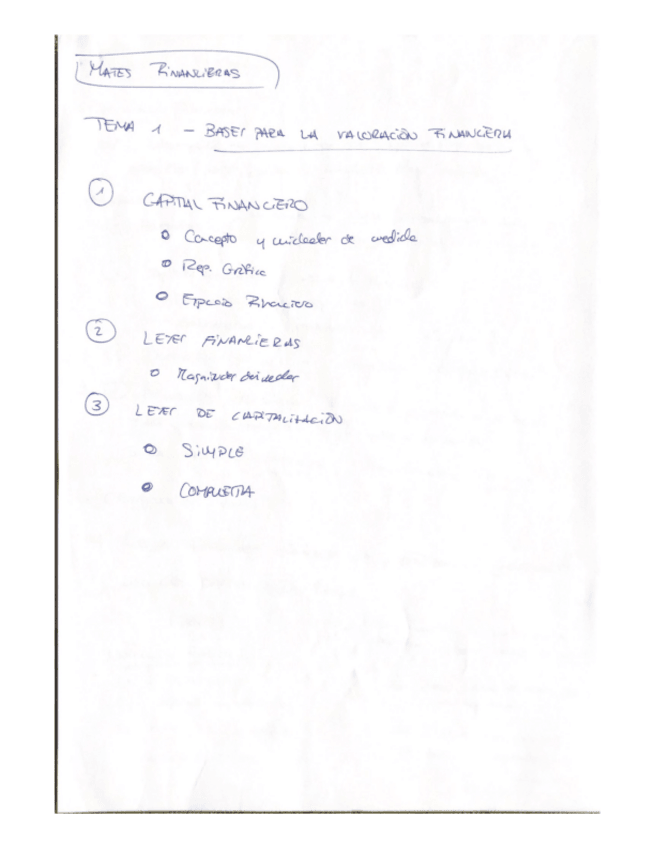 MATES FINANCIERAS
TEMA 1 - BASES PARA LA VALORACIÓN FINANCIERA
1 CAPITAL FINANCIERO
Concepto y unidades de medida
Rep. Gráfica
Espacio Financiero
2 LEYES FINANCIERAS
Magnitudes derivadas
3 LEYES DE CAPITALIZACIÓN
SIMPLE
COMPUESTA